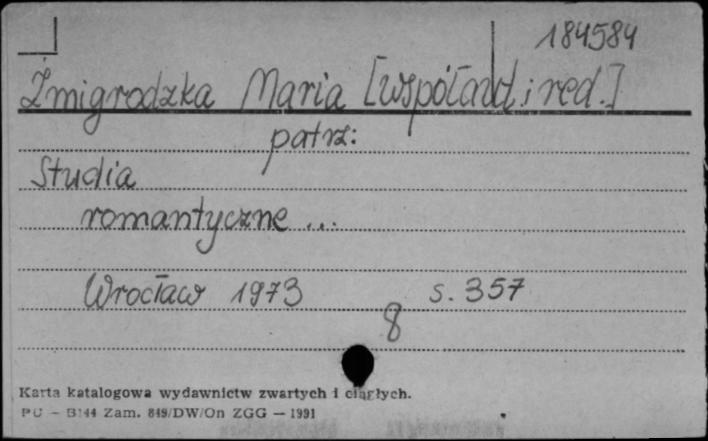 184584
Żmigrodzka Maria [współaut. i red.]
patrz:
Studia
romantyczne ...
Wrocław 1973 s. 357
8
Karta katalogowa wydawnictw zwartych i ciągłych.
PU – B144 Zam. 849/DW/On ZGG — 1991